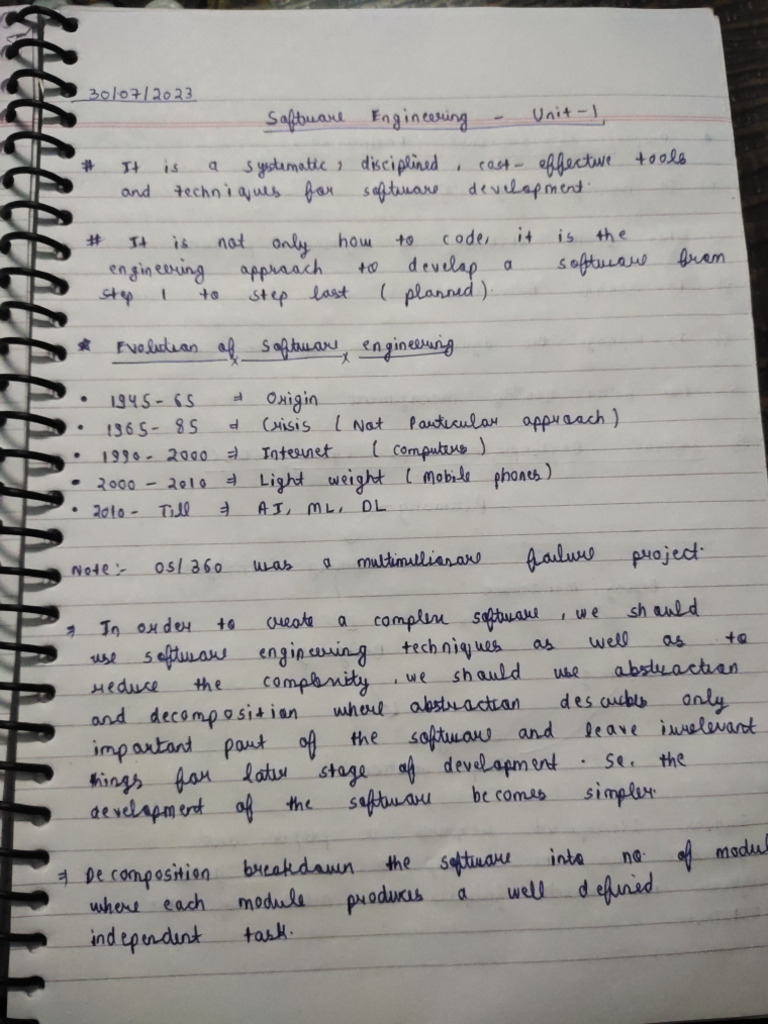 30/07/2023
Software Engineering - Unit-1
# It is a systematic, disciplined, cost-effective tools
and techniques for software development.
# It is not only how to code, it is the
engineering approach to develop a software from
step 1 to step last (planned).
* Evolution of software engineering
• 1945-65 ⇒ Origin
• 1965-85 ⇒ Crisis (Not Particular approach)
• 1990-2000 ⇒ Internet (computers)
• 2000-2010 ⇒ Light weight (mobile phones)
• 2010- Till ⇒ AI, ML, DL
Note:- OS/360 was a multimillianare failure project.
⇒ In order to create a complex software, we should
use software engineering techniques as well as to
reduce the complexity, we should use abstraction
and decomposition where abstraction describes only
important part of the software and leave irrelevant
things for later stage of development. So, the
development of the software becomes simpler.
⇒ Decomposition breakdown the software into no. of modul
where each module produces a well defined
independent task.